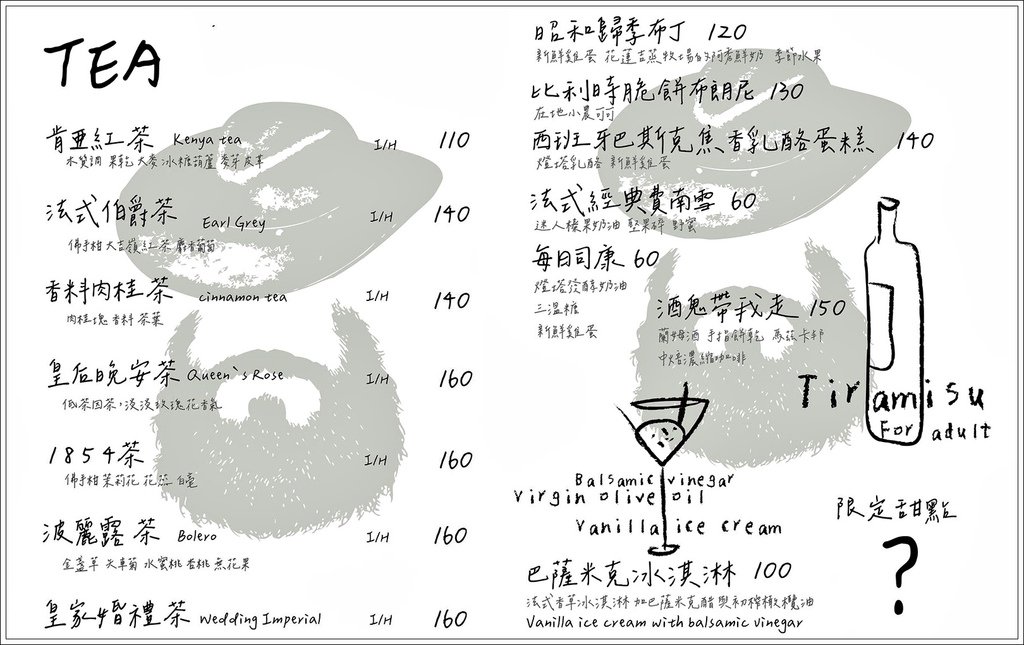 TEA
肯亞紅茶 Kenya tea I/H 110
木質調 果乾 大麥 冰糖葫蘆 麥芽 皮革
法式伯爵茶 Earl Grey I/H 140
佛手柑 大吉嶺紅茶 麝香葡萄
香料肉桂茶 cinnamon tea I/H 140
肉桂塊 香料 茶葉
皇后晚安茶 Queen's Rose I/H 160
低茶因茶，淡淡玫瑰花香氣
1854茶 I/H 160
佛手柑 茉莉花 花蕊 白毫
波麗露茶 Bolero I/H 160
金盞草 矢車菊 水蜜桃 香桃 無花果
皇家婚禮茶 Wedding Imperial I/H 160
昭和歸季布丁 120
新鮮雞蛋 花蓮吉蒸牧場 鮮奶 季節水果
比利時脆餅布朗尼 130
在地小農可可
西班牙巴斯克焦香乳酪蛋糕 140
燈塔乳酪 新鮮雞蛋
法式經典費南雪 60
迷人榛果奶油 堅果碎 野蜜
每日司康 60
燈塔發酵奶油
三溫糖
新鮮雞蛋
酒鬼帶我走 150
蘭姆酒 手指餅乾 馬茲卡邦
中焙濃縮咖啡
Tiramisu
For adult
Balsamic vinegar
Virgin olive oil
Vanilla ice cream
限定甜點
?
巴薩米克冰淇淋 100
法式香草冰淇淋 加巴薩米克醋與初榨橄欖油
Vanilla ice cream with balsamic vinegar